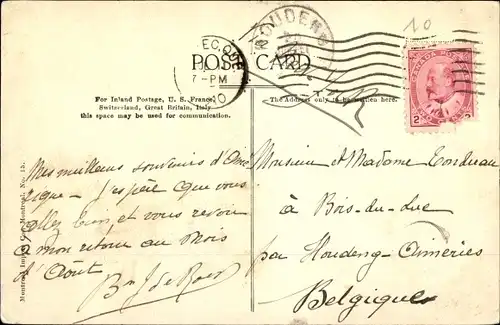 10
HOUDENG
EC, QUE
7-PM
10
POST CARD
CANADA POSTAGE
2 2
For Inland Postage, U. S., France,
Switzerland, Great Britain, Italy
this space may be used for communication.
The Address only to be written here.
Mes meilleurs souvenirs d'Amé
rique — j'espère que vous
allez bien et vous revoir
à mon retour au mois
d'Août
Bon J de Roer
Monsieur et Madame Tondreau
à Bois-du-Luc
par Houdeng-Aimeries
Belgique
Montreal No. 15.